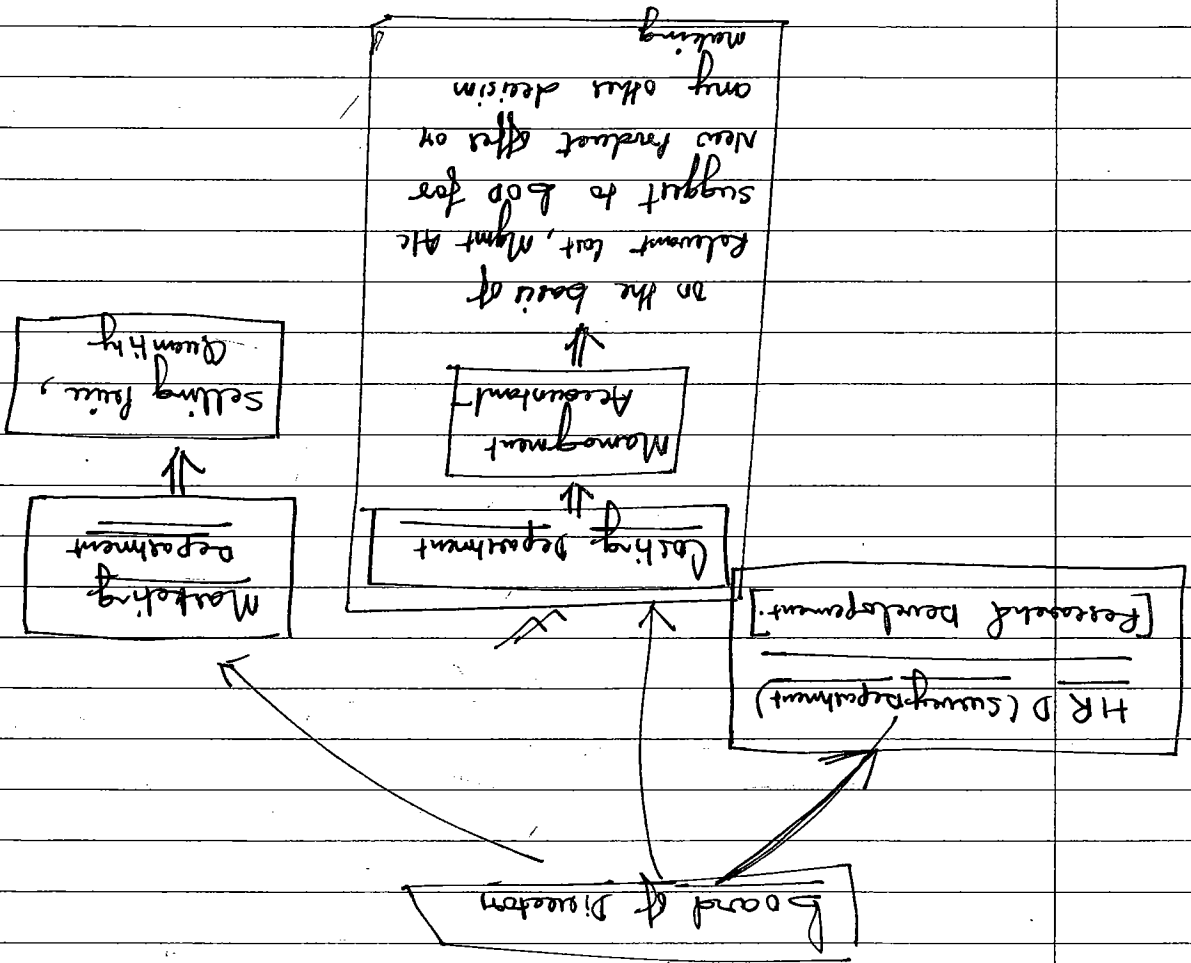 Board of Director
HRD (Survey Department)
[Research Developement]
Costing Department
Management
Accountant
on the basis of
Relevant cost, Mgmt A/c
suggest to BOD for
New Product offer or
any other decision
making
Marketing
Department
Selling Price,
Quantity